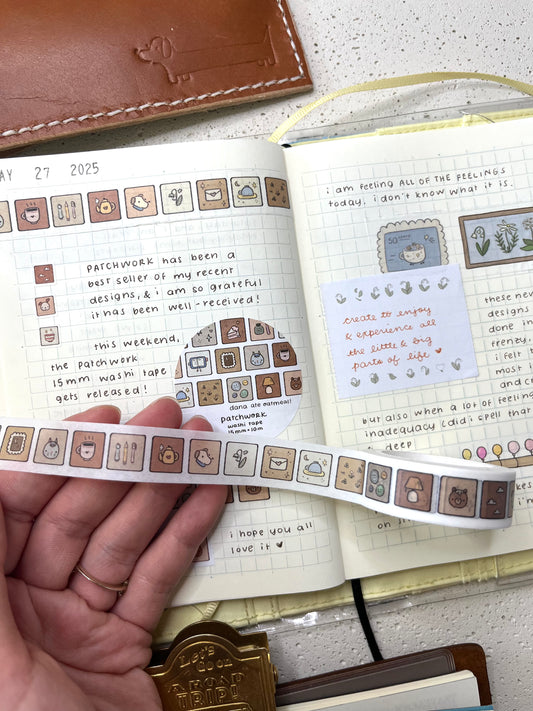 AY 27 2025
PATCHWORK has been a
best seller of my recent
designs, & i am so grateful
it has been well-received!
this weekend,
the patchwork
15mm washi tape
gets released!
dana ate oatmeal!
PATCHWORK
washi tape
15mm x 10m
i hope you all
love it ♥
i am feeling ALL OF THE FEELINGS
today. i don't know what it is.
50
create to enjoy
& experience all
the little & big
parts of life ♥
these new
designs
done in
frenzy.
i felt
most i
and cr
but also when a lot of feeling
inadequacy (did i spell that
deep
Let's
go on
A ROAD
TRIP!